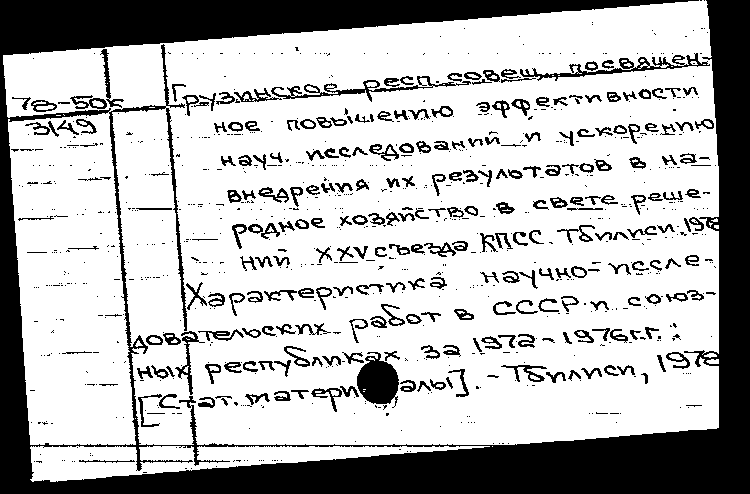 78-50к Грузинское респ. совещ., посвящен-
3149
ное повышению эффективности
науч. исследований и ускорению
внедрения их результатов в на-
родное хозяйство в свете реше-
ний XXV съезда КПСС. Тбилиси. 1978
Характеристика научно-иссле-
довательских работ в СССР и союз-
ных республиках за 1972-1976 г.г.:
[Стат. материалы]. - Тбилиси, 1978